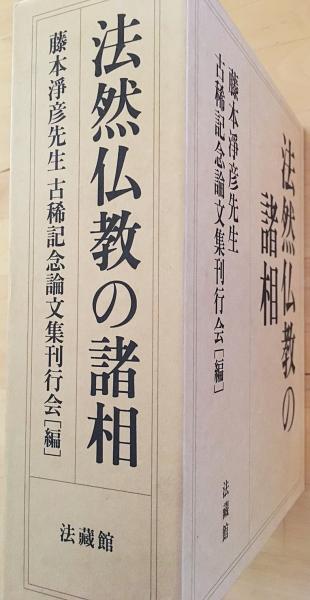 法然仏教の諸相
藤本淨彦先生 古稀記念論文集刊行会[編]
法藏館
法然仏教の
諸相
藤本淨彦先生
古稀記念論文集刊行会[編]
法藏館